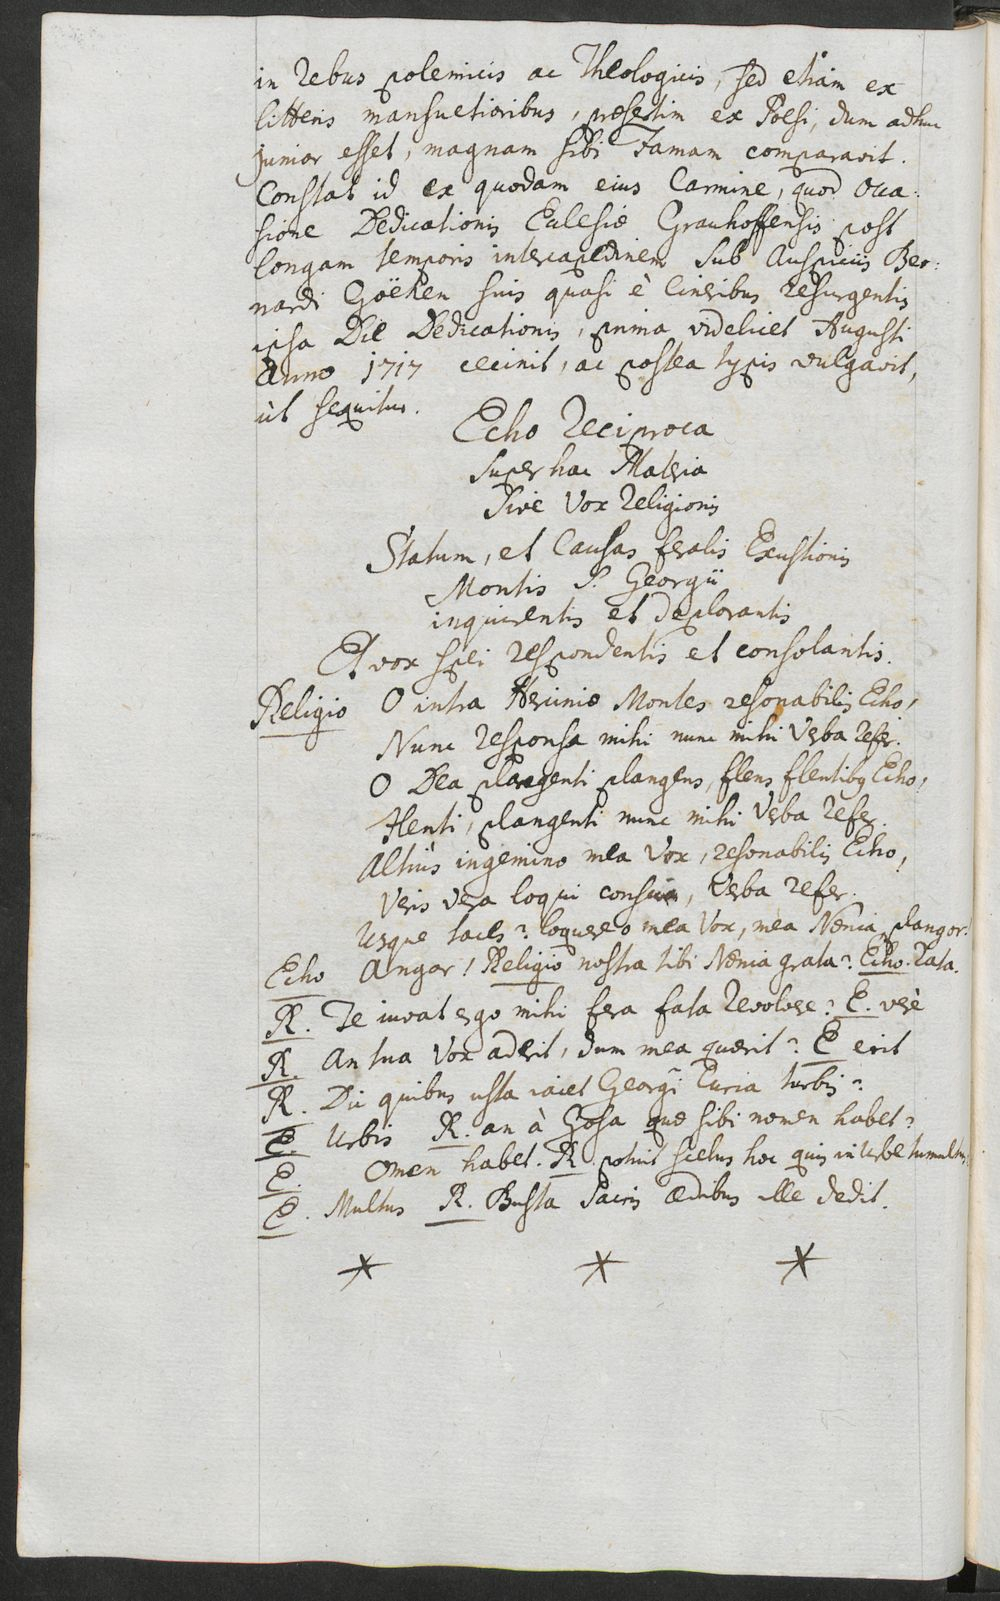 in rebus polemicis ac Theologicis, sed etiam ex
litteris mansuetioribus, præsertim ex Poesi, dum adhuc
junior esset, magnam sibi Famam comparavit.
Constat id ex quodam eius Carmine, quod occa:
sione Dedicationis Ecclesiæ Grauhoffensis post
longam temporis intercapedinem sub Auspiciis Ber:
nardi Goëken suis quasi è Cineribus resurgentis
ipsa Die Dedicationis, prima videlicet Augusti
Anno 1717 cecinit, ac postea typis vulgavit,
ùt sequitur.
Echo reciproca
super hac Materia
Sive Vox religionis
Statum, et Causas feralis Exustionis
Montis S. Georgii
inquirentis et deplorantis
Et vox spei respondentis et consolantis.
Religio O intra Hercinio Montes resonabilis Echo,
Nunc responsa mihi nunc mihi Verba refer.
O Dea plangenti plangens, flens flentibus Echo,
Flenti, plangenti nunc mihi Verba refer.
Altiùs ingemino mea Vox, resonabilis Echo,
Veris vera loqui conscia, Verba refer.
Usque taces? loquere o mea Vox, mea Nænia, plangor!
Echo Angor! Religio nostra tibi Nænia grata? Echo. Rata.
R. Te iuvat ergo mihi fera fata revolvere? E. verè
R. An tua Vox aderit, dum mea quærit? E erit
R. Dic quibus usta iacet Georgî Curia turbis?
E. Urbis R. an à Gosa quæ sibi nomen habet?
E. Omen habet. R. potuit scelus hoc quis in Urbe tumultus?
E. Multus R. Busta Sacris ædibus ille dedit.